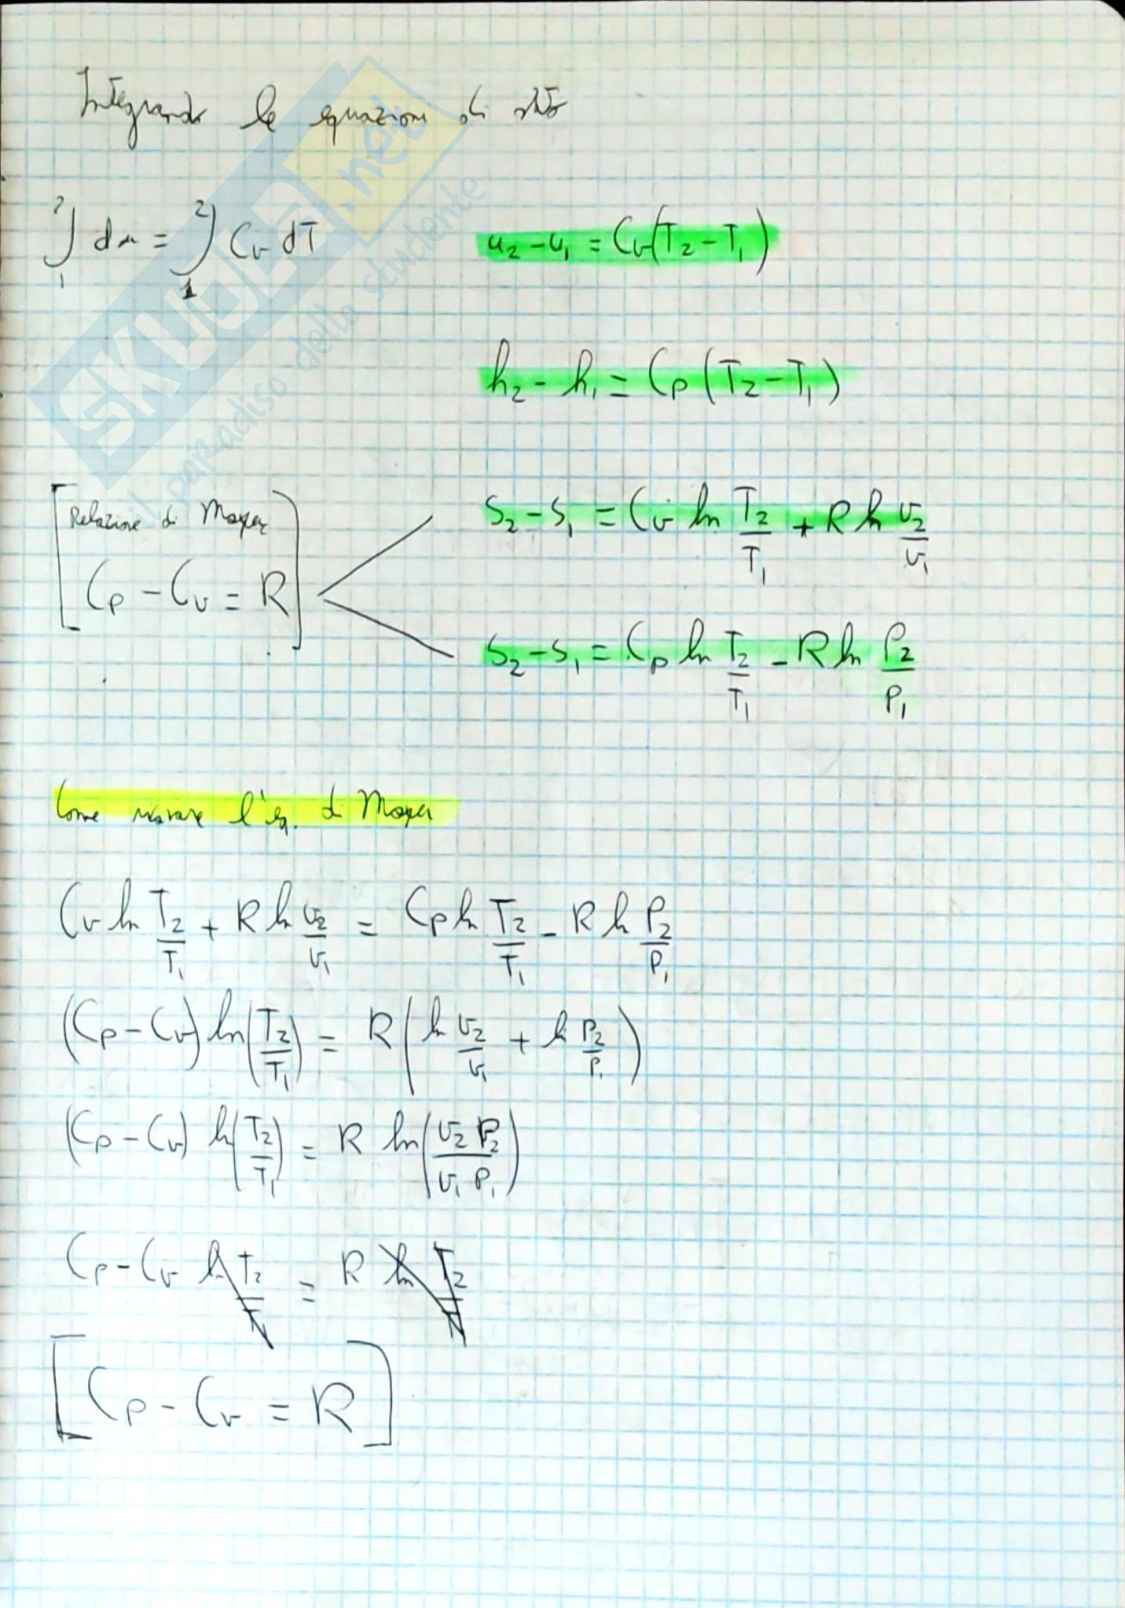 Integrando le equazioni di stato
∫₁² du = ∫₁² Cv dT    u₂ - u₁ = Cv(T₂ - T₁)
h₂ - h₁ = Cp (T₂ - T₁)
[Relazione di Mayer    S₂ - S₁ = Cv ln T₂/T₁ + R ln v₂/v₁
Cp - Cv = R]
S₂ - S₁ = Cp ln T₂/T₁ - R ln P₂/P₁
Come ricavare l'eq. di Mayer
Cv ln T₂/T₁ + R ln v₂/v₁ = Cp ln T₂/T₁ - R ln P₂/P₁
(Cp - Cv) ln(T₂/T₁) = R (ln v₂/v₁ + ln P₂/P₁)
(Cp - Cv) ln(T₂/T₁) = R ln(v₂ P₂/v₁ P₁)
Cp - Cv ln T₂/T₁ = R ln T₂/T₁
[Cp - Cv = R]
SKUOLA.net
il paradiso dello studente